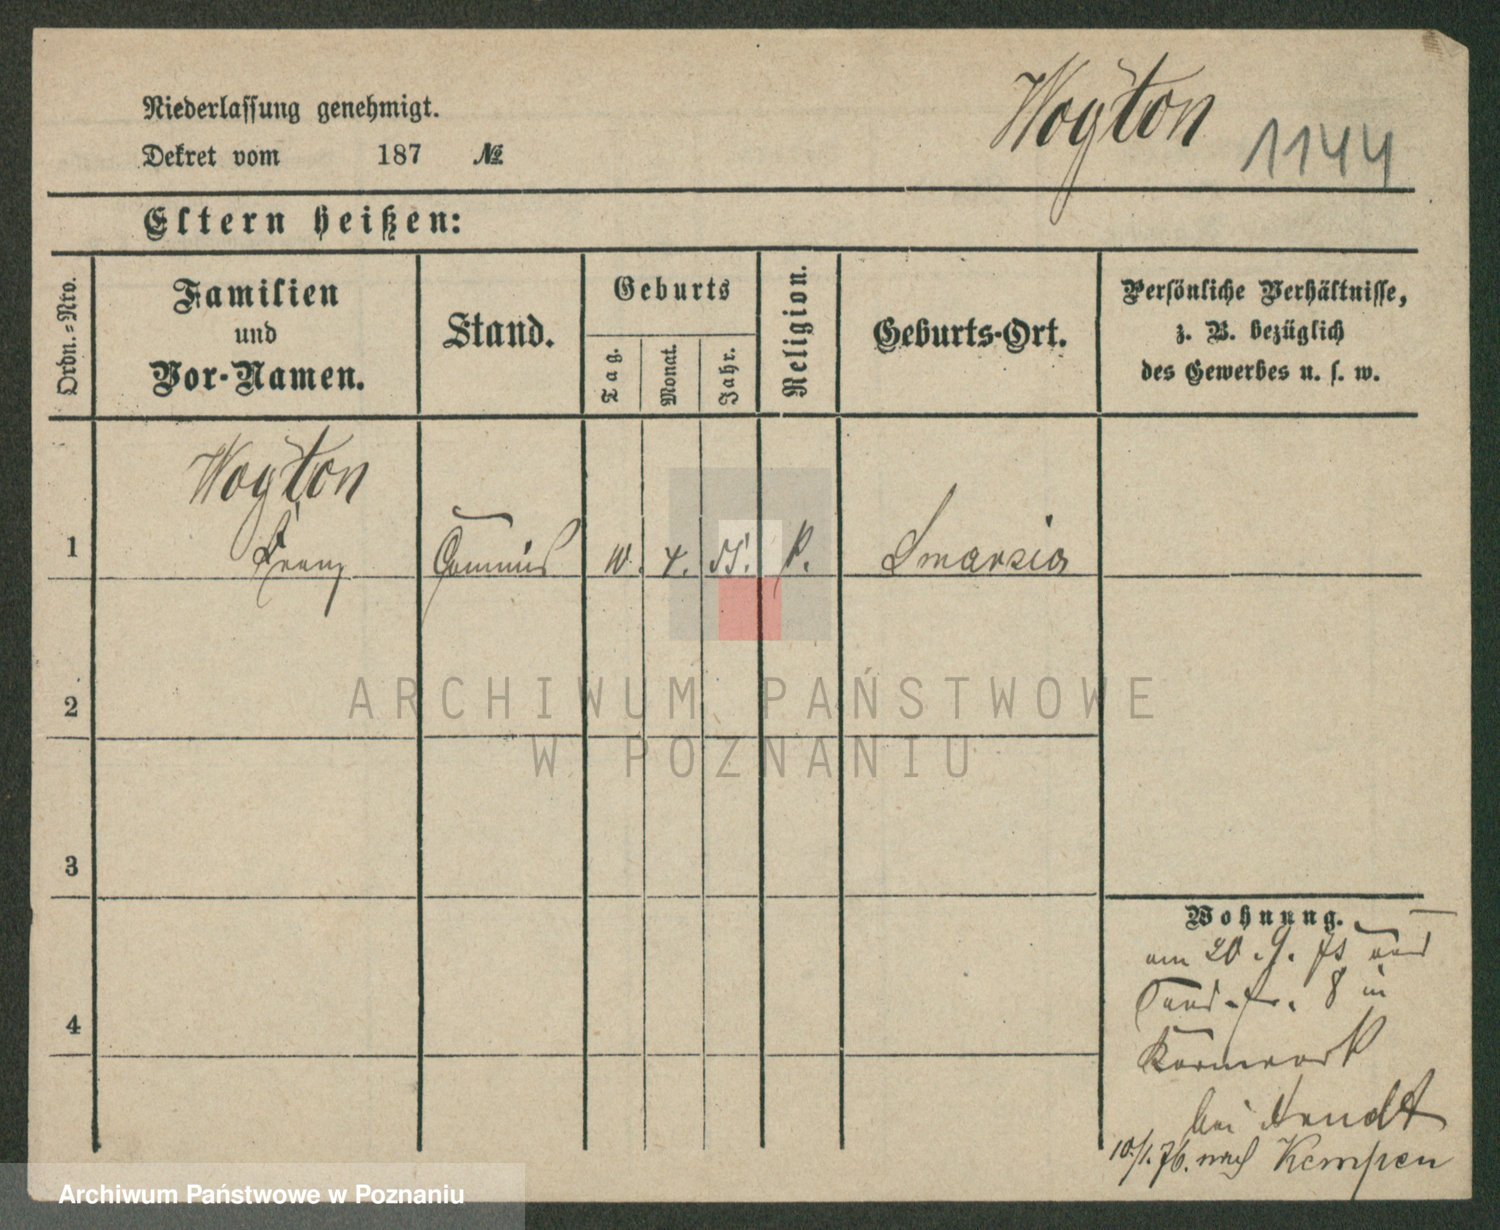 Wogton 1144
Niederlassung genehmigt.
Dekret vom 187 №
Eltern heißen:
Ordn.-Nro.
Familien
und
Vor-Namen.
Stand.
Geburts
Tag.
Monat.
Jahr.
Religion.
Geburts-Ort.
Persönliche Verhältnisse,
z. B. bezüglich
des Gewerbes u. s. w.
Wogton
1 Franz Commis 10. 4. 55. k.
2
3
4
Wohnung.
am 20. 9. 75
8 in
bei Arndt
10./1. 76. nach Kempen
ARCHIWUM PAŃSTWOWE
W POZNANIU
Archiwum Państwowe w Poznaniu